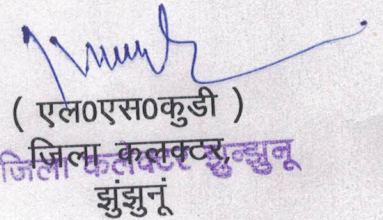 ( एल0एस0कुडी )
जिला कलक्टर,
जिला कलक्टर झुन्झुनू
झुंझुनूं